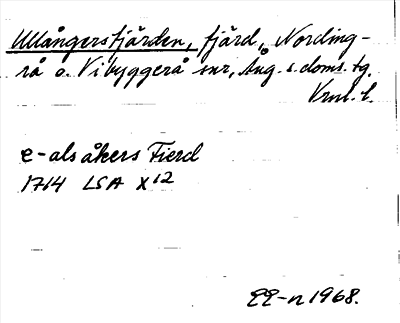 Ullångersfjärden, fjärd, Nording-
rå o. Vibyggerå snr, Ång. s. doms. tg.
Vrnl. l.
e-als åkers Fierd
1714 LSA X 12
EE-n 1968.